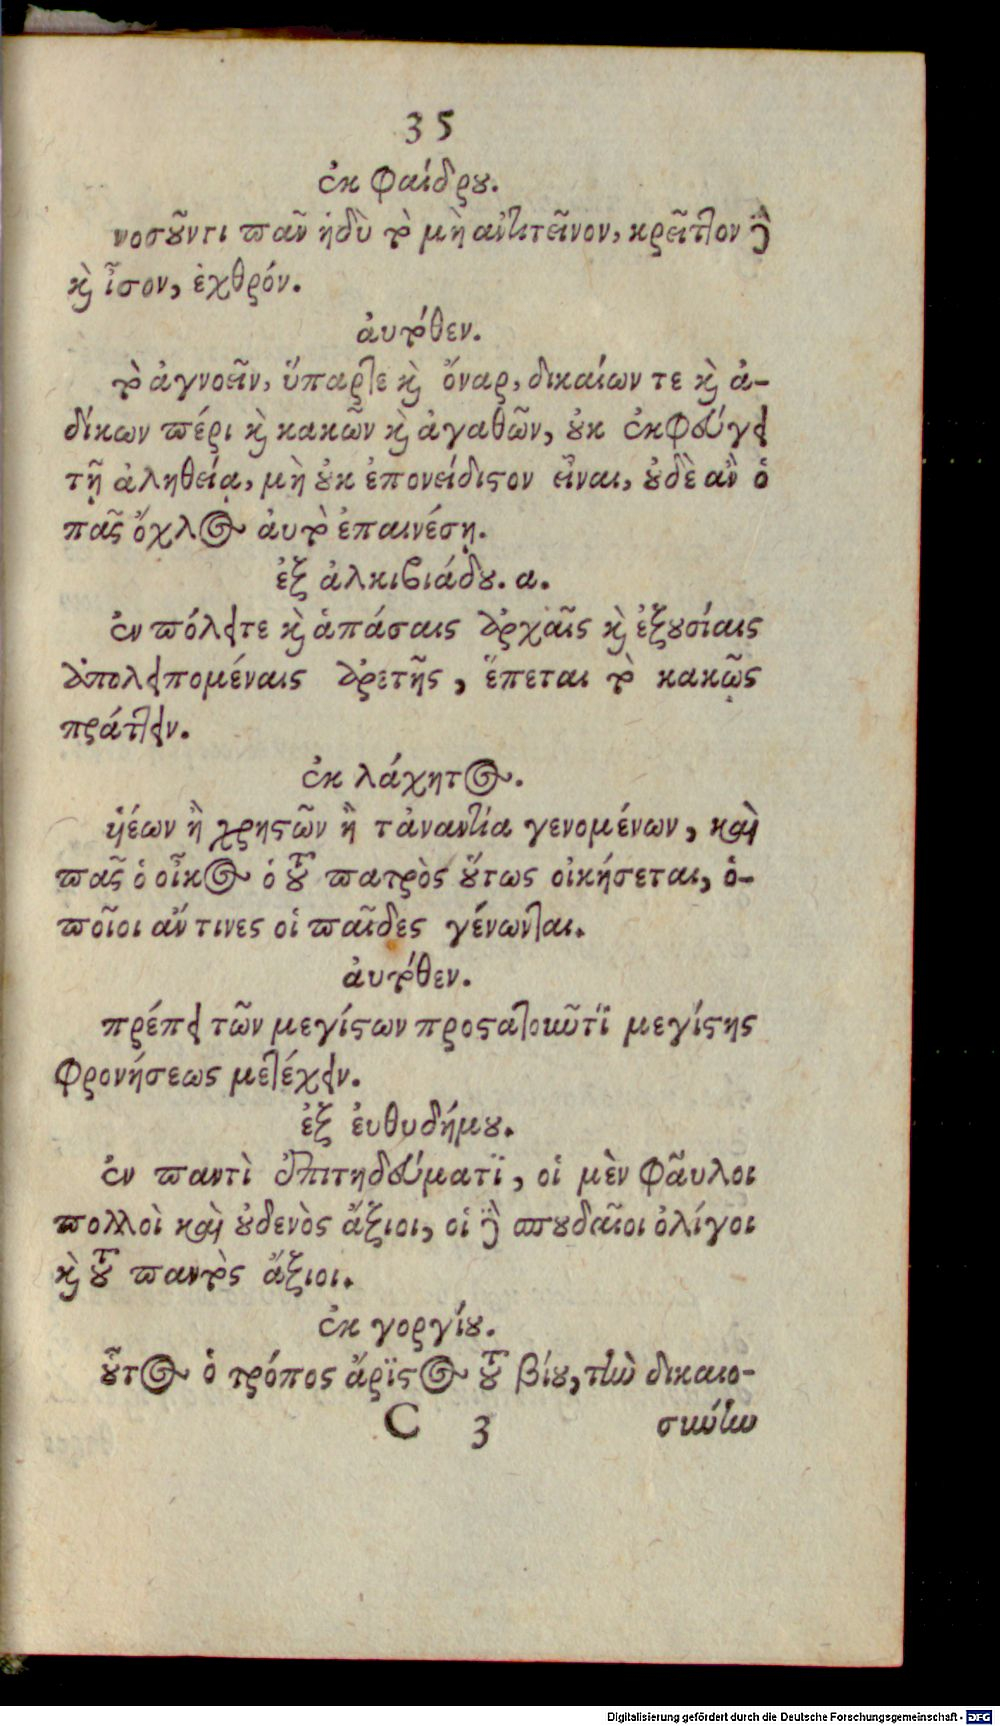 35
ἐκ φαίδρου.
νοσοῦντι πᾶν ἡδὺ τὸ μὴ ἀντιτεῖνον, κρεῖττον δὲ
καὶ ἶσον, ἐχθρόν.
ἀυτόθεν.
τὸ ἀγνοεῖν, ὕπαρτε καὶ ὄναρ, δικαίων τε καὶ ἀ-
δίκων πέρι καὶ κακῶν καὶ ἀγαθῶν, οὐκ ἐκφεύγει
τῇ ἀληθείᾳ, μὴ οὐκ ἐπονείδιστον εἶναι, οὐδὲ ἂν ὁ
πᾶς ὄχλος ἀυτὸ ἐπαινέσῃ.
ἐξ ἀλκιβιάδου. α.
ἐν πόλει τε καὶ ἁπάσαις ἀρχαῖς καὶ ἐξουσίαις
ἀπολειπομέναις ἀρετῆς, ἕπεται τὸ κακῶς
πράττειν.
ἐκ λάχητος.
ὑέων ἢ χρηστῶν ἢ τἀναντία γενομένων, καὶ
πᾶς ὁ οἶκος ὁ τοῦ πατρὸς οὕτως οἰκήσεται, ὁ-
ποῖοι ἄν τινες οἱ παῖδες γένωνται.
ἀυτόθεν.
πρέπει τῶν μεγίστων προστατοῦντϊ μεγίστης
φρονήσεως μετέχειν.
ἐξ ἐυθυδήμου.
ἐν παντὶ ἐπιτηδεύματϊ, οἱ μὲν φᾶυλοι
πολλοὶ καὶ οὐδενὸς ἄξιοι, οἱ δὲ σπουδαῖοι ὀλίγοι
καὶ τοῦ παντὸς ἄξιοι.
ἐκ γοργίου.
οὗτος ὁ τρόπος ἄρϊστος τοῦ βίου, τὴν δικαιο-
C 3 σύνην
Digitalisierung gefördert durch die Deutsche Forschungsgemeinschaft - DFG